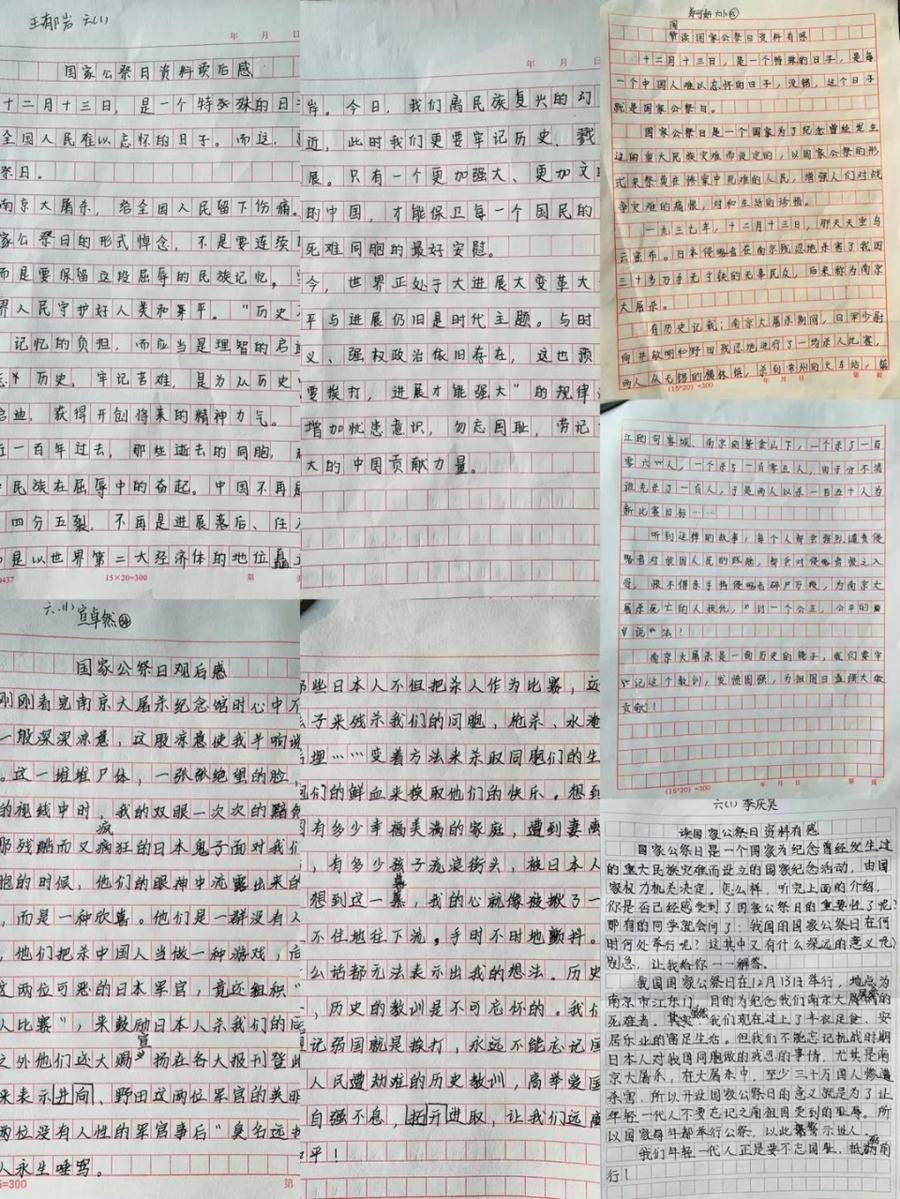 王郁岩 六(1)
年 月 日
国家公祭日资料读后感
十二月十三日,是一个特殊的日
全国人民难以忘怀的日子。而这,
祭日。
南京大屠杀,给全国人民留下伤痛。
家公祭日的形式悼念,不是要连续
而是要保留这段屈辱的民族记忆。
界人民守护好人类和平。“历史
记忆的负担,而应当是理智的启
历史,牢记苦难,是为从历史
启迪,获得开创将来的精神力气。
近一百年过去,那些逝去的同胞,
民族在屈辱中的奋起。中国不再
四分五裂,不再是进展落后、任
是以世界第二大经济体的地位矗
0437 15×20=300 第
年 月 日
岸。今日,我们离民族复兴的
近,此时我们更要牢记历史,戮
展。只有一个更加强大、更加文
的中国,才能保卫每一个国民的
死难同胞的最好安慰。
今,世界正处于大进展大变革大
平与进展仍旧是时代主题。与时
义、强权政治依旧存在,这也
要挨打,进展才能强大”的规律
增加忧患意识,勿忘国耻,劳记
大的中国贡献力量。
读国家公祭日资料有感
十二月十三日,是一个特殊的日子,是每
一个中国人难以忘怀的日子,没错,这个日子
就是国家公祭日。
国家公祭日是一个国家为了纪念曾经发生
过的重大民族灾难而设定的,以国家公祭的形
式来祭奠在惨案中死难的人民,增强人们对战
争灾难的痛恨,对和平生活的珍惜。
一九三七年,十二月十三日,那天天空乌
云密布。日本侵略者在南京残忍地杀害了我国
三十多万手无寸铁的无辜民众,后来称为南京
大屠杀。
有历史记载:南京大屠杀期间,日军少尉
向井敏明和野田残忍地进行了一场杀人比赛,
两人从无锡的横林镇,杀向常州的火车站,
(15*20)=300 年 月 日 第 页
江的句容城、南京的紫金山下,一个杀了一百
零六人,一个杀了一百零五人,由于分不清
谁先杀了一百人,于是两人以杀一百五十人为
新比赛目标……
听到这样的故事,每个人都会强烈谴责侵
略者对我国人民的残酷,都会对侵略者恨之入
骨,恨不得亲手将侵略者碎尸万段,为南京大
屠杀死亡的人报仇,“讨一个公正,公平的
说”法!
南京大屠杀是一面历史的镜子,我们要牢
记这个教训,发愤图强,为祖国日益强大做
贡献!
(15*20)=300 年 月 日 第 页
六、(1) 宣卓然
国家公祭日观后感
刚刚看完南京大屠杀纪念馆时心中不
一般深深凉意,这股凉意使我半响说
。这一堆堆尸体,一张张绝望的脸
的视线中时,我的双眼一次次的黯
那残酷而又疯狂的日本鬼子面对我们
胞的时候,他们的眼神中流露出来的
,而是一种欣喜。他们是一群没有人
,他们把杀中国人当做一种游戏,
这两位可恶的日本军官,竟还组织“
人比赛”,来鼓励日本人杀我们的同
之外他们还大赐宣扬在各大报刊登
来表示井向、野田这两位军官的英
两位没有人性的军官事后“臭名远
人永生唾骂。
5=300 第
那些日本人不但把杀人作为比赛,还
子来残杀我们的同胞,枪杀、水淹
埋……变着方法来杀取同胞们的生
我们的鲜血来换取他们的快乐。想到
国有多少幸福美满的家庭,遭到妻离
,有多少孩子流浪街头,被日本人
想到这一幕,我的心就像被揪了一
不住地往下流,手时不时地颤抖。
么话都无法表示出我的想法。历史
,历史的教训是不可忘怀的。我们
记弱国就是挨打,永远不能忘记国
人民遭劫难的历史教训,高举爱国
自强不息,拓开进取,让我们远离
平!
六(1) 李庆昊
读国家公祭日资料有感
国家公祭日是一个国家为纪念曾经发生过
的重大民族灾难而设立的国家纪念活动,由国
家权力机关决定。怎么样,听完上面的介绍,
你是否已经感受到了国家公祭日的重要性了呢?
那有的同学就会问了:我国的国家公祭日在何
时何处举行呢?这其中又有什么深远的意义呢?
别急,让我给你一一解答。
我国国家公祭日在12月13日举行,地点为
南京市江东门,目的为纪念我们南京大屠杀的
死难者。其实,我们现在过上了丰衣足食、安
居乐业的富足生活。但我们不能忘记抗战时期
日本人对我国同胞做的残忍的事情,尤其是南
京大屠杀,在大屠杀中,至少三十万国人惨遭
杀害,所以开设国家公祭日的意义就是为了让
年轻一代人不要忘记之前祖国受到的耻辱。所
以国家每年都举行公祭,以此警示世人。
我们年轻一代人正是要不忘国耻,砥砺前
行!